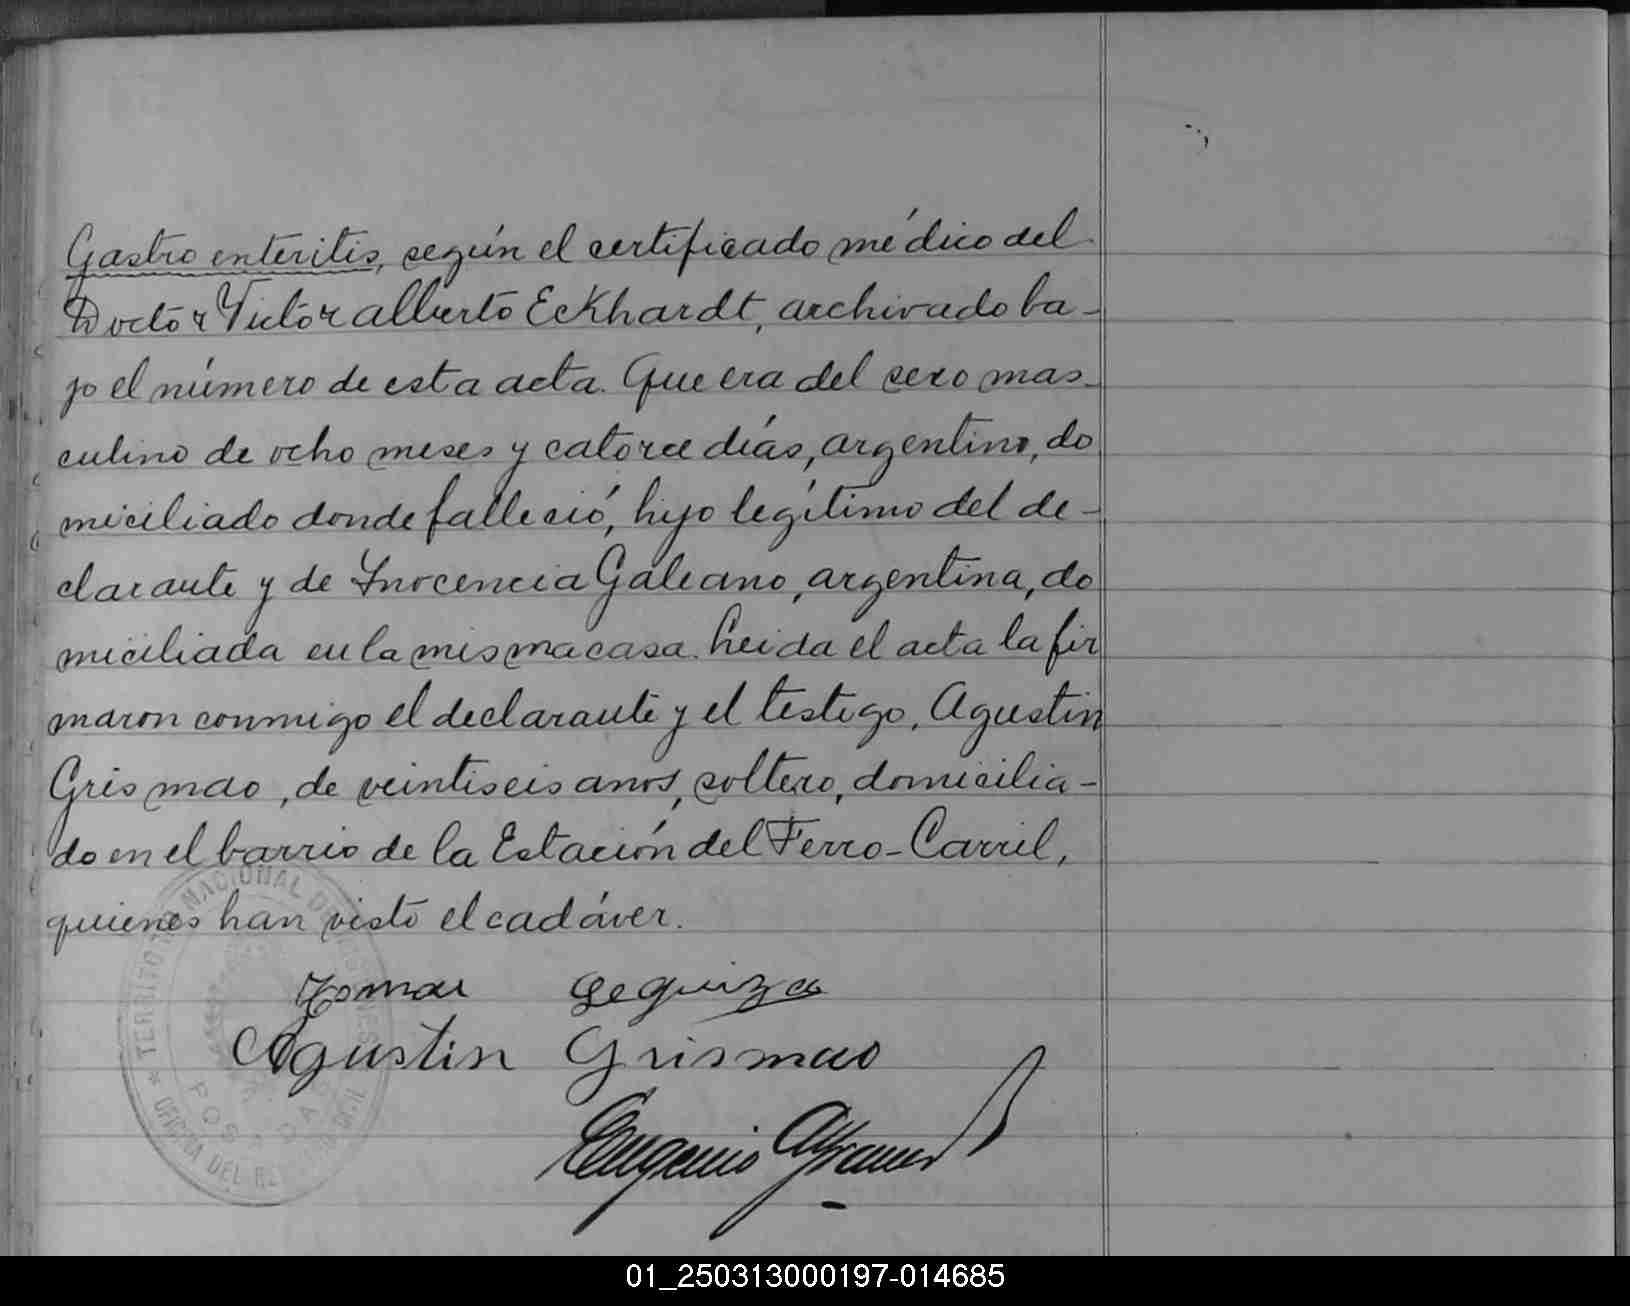 Gastro enteritis, según el certificado médico del
Doctor Victor Alberto Eckhardt, archivado ba-
jo el número de esta acta. Que era del sexo mas-
culino de ocho meses y catorce días, argentino, do
miciliado donde falleció, hijo legítimo del de-
clarante y de Inocencia Galeano, argentina, do
miciliada en la misma casa. Leida el acta la fir
maron conmigo el declarante y el testigo, Agustin
Grismao, de veintiseis anos, soltero, domicilia-
do en el barrio de la Estación del Ferro-Carril,
quienes han visto el cadáver.
Tomas Leguiza
Agustin Grismao
Eugenio
TERRITORIO NACIONAL DE MISIONES
POSADAS
* OFICINA DEL REGISTRO CIVIL
01_250313000197-014685